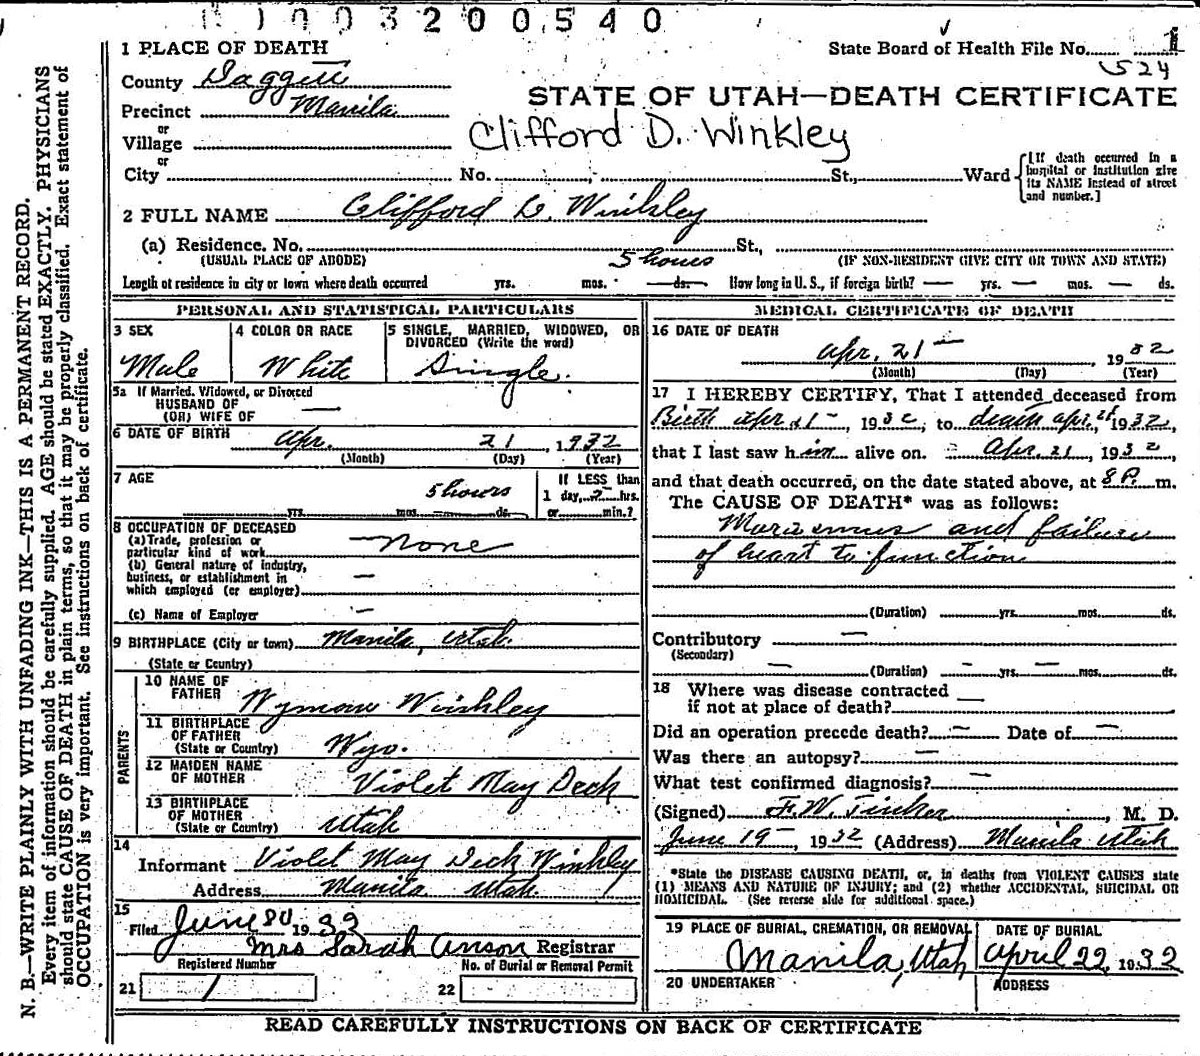 003200540
1 PLACE OF DEATH
State Board of Health File No. 1
524
County Daggett
STATE OF UTAH—DEATH CERTIFICATE
Precinct Manila
or
Village
Clifford D. Winkley
or
City No. St., Ward
[If death occurred in a hospital or institution give its NAME instead of street and number.]
2 FULL NAME Clifford D. Winkley
(a) Residence. No. St.,
(USUAL PLACE OF ABODE) 5 hours (IF NON-RESIDENT GIVE CITY OR TOWN AND STATE)
Length of residence in city or town where death occurred yrs. mos. ds. How long in U. S., if foreign birth? — yrs. — mos. — ds.
PERSONAL AND STATISTICAL PARTICULARS
3 SEX
Male
4 COLOR OR RACE
White
5 SINGLE, MARRIED, WIDOWED, OR
DIVORCED (Write the word)
Single.
5a If Married, Widowed, or Divorced
HUSBAND OF
(OR) WIFE OF —
6 DATE OF BIRTH Apr. 21, 1932
(Month) (Day) (Year)
7 AGE
5 hours
yrs. mos. ds.
If LESS than
1 day, 5 hrs.
or min.?
8 OCCUPATION OF DECEASED
(a) Trade, profession or
particular kind of work None
(b) General nature of industry,
business, or establishment in
which employed (or employer) —
(c) Name of Employer —
9 BIRTHPLACE (City or town) Manila, Utah.
(State or Country)
PARENTS
10 NAME OF
FATHER Wyman Winkley
11 BIRTHPLACE
OF FATHER
(State or Country) Wyo.
12 MAIDEN NAME
OF MOTHER Violet May Deck
13 BIRTHPLACE
OF MOTHER
(State or Country) Utah
14
Informant Violet May Deck Winkley
Address Manila Utah.
15
Filed June 30 1932
Mrs Sarah Anson Registrar
Registered Number No. of Burial or Removal Permit
21 1 22
MEDICAL CERTIFICATE OF DEATH
16 DATE OF DEATH
Apr. 21— 1932
(Month) (Day) (Year)
17 I HEREBY CERTIFY, That I attended deceased from
Birth Apr 21—, 1932, to death Apr. 21 1932,
that I last saw him alive on Apr. 21, 1932
and that death occurred, on the date stated above, at 8 P. m.
The CAUSE OF DEATH* was as follows:
Marasmus and failure
of heart to function
(Duration) yrs. mos. ds.
Contributory —
(Secondary)
— (Duration) — yrs. — mos. ds.
18 Where was disease contracted
if not at place of death? —
Did an operation precede death? — Date of —
Was there an autopsy? —
What test confirmed diagnosis? —
(Signed) F. W. Tinker, M. D.
June 19—, 1932 (Address) Manila Utah
*State the DISEASE CAUSING DEATH, or, in deaths from VIOLENT CAUSES state
(1) MEANS AND NATURE OF INJURY; and (2) whether ACCIDENTAL, SUICIDAL OR
HOMICIDAL. (See reverse side for additional space.)
19 PLACE OF BURIAL, CREMATION, OR REMOVAL
Manila, Utah
DATE OF BURIAL
April 22, 1932
20 UNDERTAKER
ADDRESS
READ CAREFULLY INSTRUCTIONS ON BACK OF CERTIFICATE
N. B.—WRITE PLAINLY WITH UNFADING INK—THIS IS A PERMANENT RECORD.
Every item of information should be carefully supplied. AGE should be stated EXACTLY. PHYSICIANS
should state CAUSE OF DEATH in plain terms, so that it may be properly classified. Exact statement of
OCCUPATION is very important. See instructions on back of certificate.